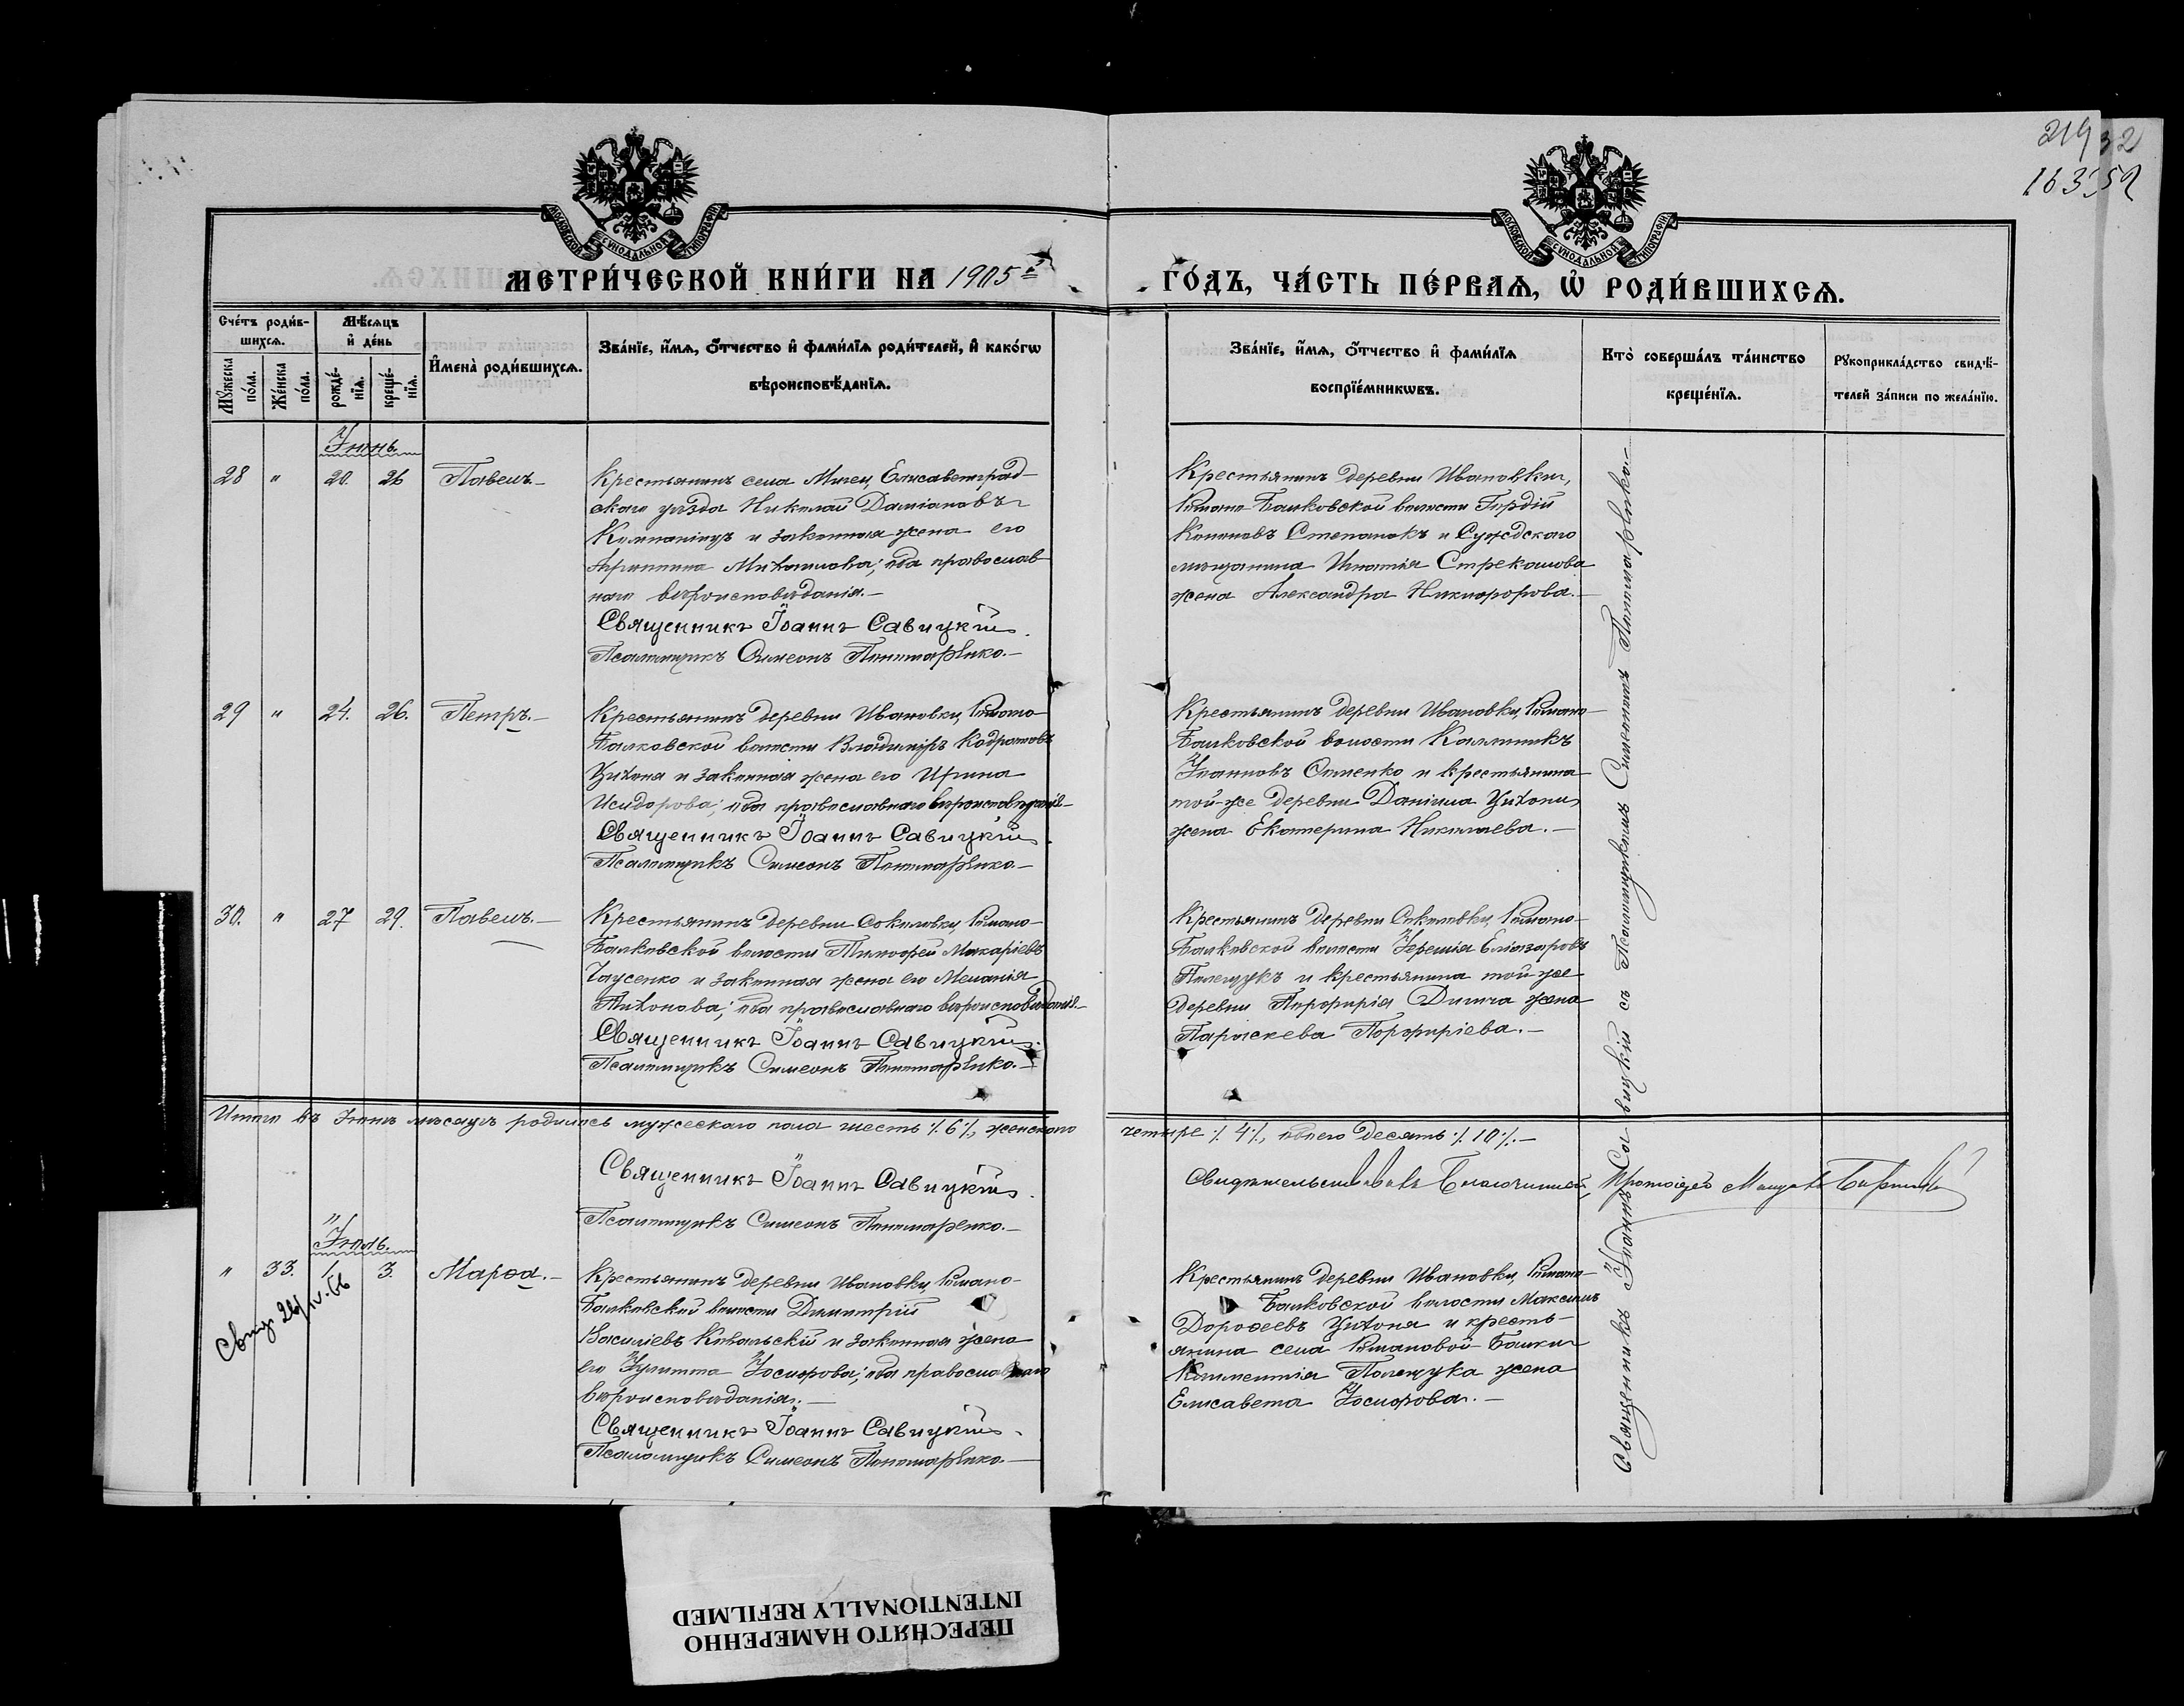 219 32
163 52
МОСКОВСКОЙ СѴНОДАЛЬНОЙ ТИПОГРАФІИ
МОСКОВСКОЙ СѴНОДАЛЬНОЙ ТИПОГРАФІИ
МЕТРИ́ЧЕСКОЙ КНИ́ГИ НА 1905 г.
ГО́ДЪ, ЧА́СТЬ ПЕ́РВАЯ, Ѡ РОДИ́ВШИХСЯ.
Сче́тъ роди́в-
шихся.
Мꙋжеска по́ла.
Же́нска по́ла.
Мѣ́сяцъ
и҆ де́нь
рожде́-
нїя.
креще́-
нїя.
И҆мена̀ роди́вшихся.
Зва́нїе, и҆́мя, ѻ҆́тчество и҆ фами́лїя роди́телей, и҆ како́гѡ
вѣроисповѣ́данїя.
Зва́нїе, и҆́мя, ѻ҆́тчество и҆ фами́лїя
воспрїе́мникѡвъ.
Кто̀ соверша́лъ та́инство
креще́нїя.
Рꙋкоприкла́дство свидѣ́-
телей за́писи по жела́нїю.
Іюнь.
28 " 20. 26 Павелъ.
Крестьянинъ села Мигеи, Елисаветград-
скаго уѣзда Николай Даміановъ
и законная жена его
Агриппина Михаилова; оба православ
наго вѣроисповѣданія.
Священникъ Іоаннъ Савицкій.
Псаломщикъ Симеонъ Пономаренко.
Крестьянинъ деревни Ивановки,
Романо-Балковской волости Гордій
Кононовъ Степанокъ и Суждскаго
мѣщанина Игнатія Стрекалова
жена Александра Никифорова.
29 " 24. 26. Петръ.
Крестьянинъ деревни Ивановки, Романо-
Балковской волости Владиміръ Кодратовъ
Цихоня и законная жена его Ирина
Исидорова; оба православнаго вѣроисповѣданія
Священникъ Іоаннъ Савицкій.
Псаломщикъ Симеонъ Пономаренко.
Крестьянинъ деревни Ивановки, Романо-
Балковской волости Каллиникъ
Іоанновъ и крестьянина
той-же деревни Даніила Цихони
жена Екатерина Николаева.
30. " 27 29. Павелъ.
Крестьянинъ деревни Соколовки, Романо-
Балковской волости Тимофей Макаріевъ
и законная жена его Меланія
Тихонова; оба православнаго вѣроисповѣданія.
Священникъ Іоаннъ Савицкій.
Псаломщикъ Симеонъ Пономаренко.
Крестьянинъ деревни Соколовки, Романо-
Балковской волости Іеремія Еліазаровъ
Полещукъ и крестьянина той же
деревни Порфирія жена
Параскева Порфиріева.
Итого въ Іюнѣ мѣсяцѣ родилось мужескаго пола шесть ∕. 6 ∕., женскаго
четыре ∕. 4 ∕., обоего десять ∕. 10 ∕.
Священникъ Іоаннъ Савицкій.
Псаломщикъ Симеонъ Пономаренко.
Свидѣтельствовалъ Благочинный, Протоіерей
Іюль.
" 33. 1. 3. Марѳа.
Крестьянинъ деревни Ивановки, Романо-
Балковской волости Димитрій
Василіевъ Ковальскій и законная жена
его Іулитта Іосифова; оба православнаго
вѣроисповѣданія.
Священникъ Іоаннъ Савицкій.
Псаломщикъ Симеонъ Пономаренко.
Крестьянинъ деревни Ивановки, Романо-
Балковской волости Максимъ
Дороѳеевъ Цихоня и кресть-
янина села Романовой-Балки
Климентія Полещука жена
Елисавета Іосифова.
Священникъ Іоаннъ Савицкій съ Псаломщикомъ Симеономъ Пономаренко.
ПЕРЕСНЯТО НАМЕРЕННО
INTENTIONALLY REFILMED